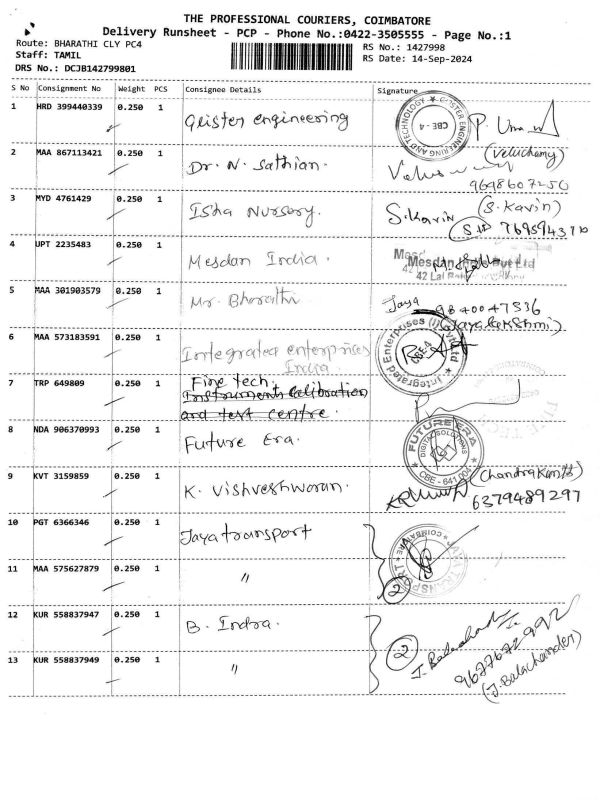 THE PROFESSIONAL COURIERS, COIMBATORE
Delivery Runsheet - PCP - Phone No.:0422-3505555 - Page No.:1
Route: BHARATHI CLY PC4
RS No.: 1427998
Staff: TAMIL
RS Date: 14-Sep-2024
DRS No.: DCJB142799801
S No Consignment No Weight PCS Consignee Details Signature
1 HRD 399440339 0.250 1 Geister engineering
CBE - 4
2 MAA 867113421 0.250 1 Dr. N. Sathian.
(Veluchamy)
9698607250
3 MYD 4761429 0.250 1 Isha Nursery. S.Kavin (S.Kavin)
4 UPT 2235483 0.250 1 Mesdan India.
5 MAA 301903579 0.250 1 Mr. Bharathi Jaya 9840047536
6 MAA 573183591 0.250 1 Integrated enterprises
India
Integrated Enterprises (I) Pvt Ltd
CBE-4
7 TRP 649809 0.250 1 Fine tech.
Instruments Calibration
and test centre.
8 NDA 906370993 0.250 1 Future Era.
FUTURE ERA
DIGITAL SOLUTIONS
CBE - 641 004
9 KVT 3159859 0.250 1 K. Vishveshwaran.
6379489297
10 PGT 6366346 0.250 1 Jayatransport
JAYA TRANSPORT COIMBATORE
2
11 MAA 575627879 0.250 1 "
12 KUR 558837947 0.250 1 B. Indra.
2
9677672992
(J. Balachander)
13 KUR 558837949 0.250 1 "